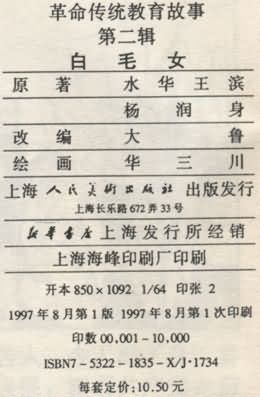 革命传统教育故事
第二辑
白毛女
原著 水华王滨
杨润身
改编 大鲁
绘画 华三川
上海人民美術出版社 出版发行
上海长乐路672弄33号
新华書店上海发行所经销
上海海峰印刷厂印刷
开本850×1092 1/64 印张2
1997年8月第1版 1997年8月第1次印刷
印数00,001-10,000
ISBN7-5322-1835-X/J·1734
每套定价:10.50元